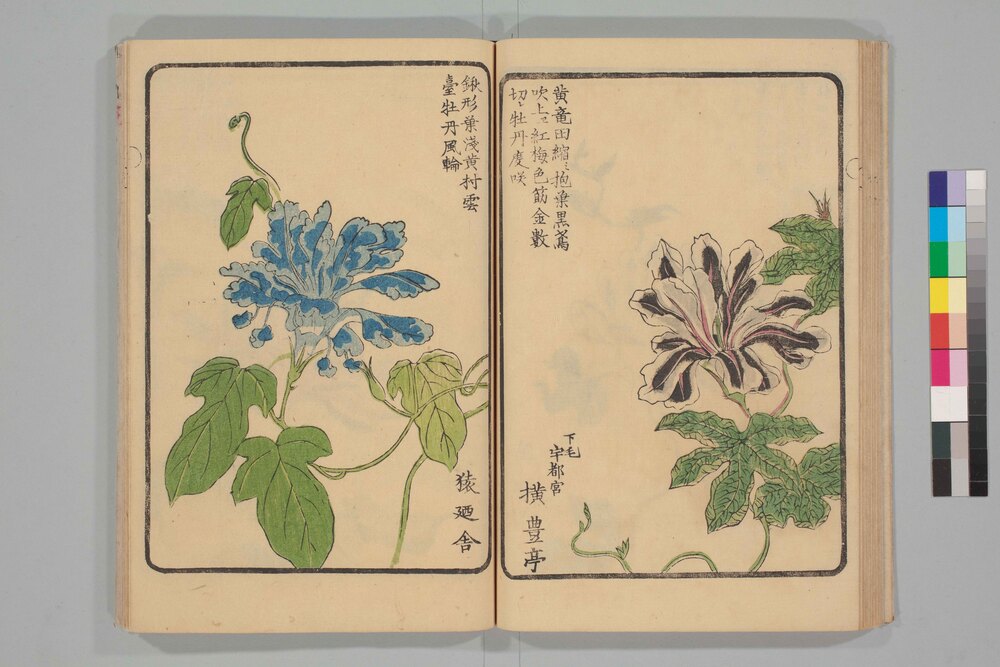 黄竜田縮ミ抱葉黒鳶
吹上ニ紅梅色筋金敷
切ミ牡丹度咲
下毛
宇都宮
横豊亭
鍬形葉淺黄村雲
臺牡丹風輪
猿廼舎